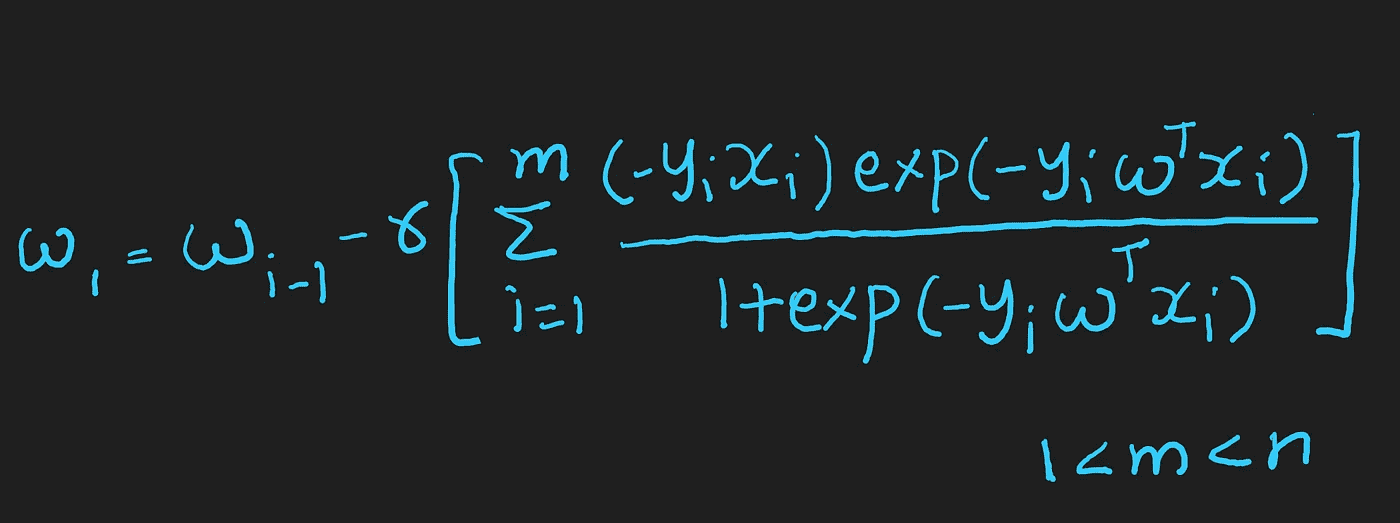 ω₁ = ω_{i-1} - γ [ \sum_{i=1}^{m} \frac{(-y_i x_i) exp(-y_i ω^T x_i)}{1+exp(-y_i ω^T x_i)} ]
1<m<n